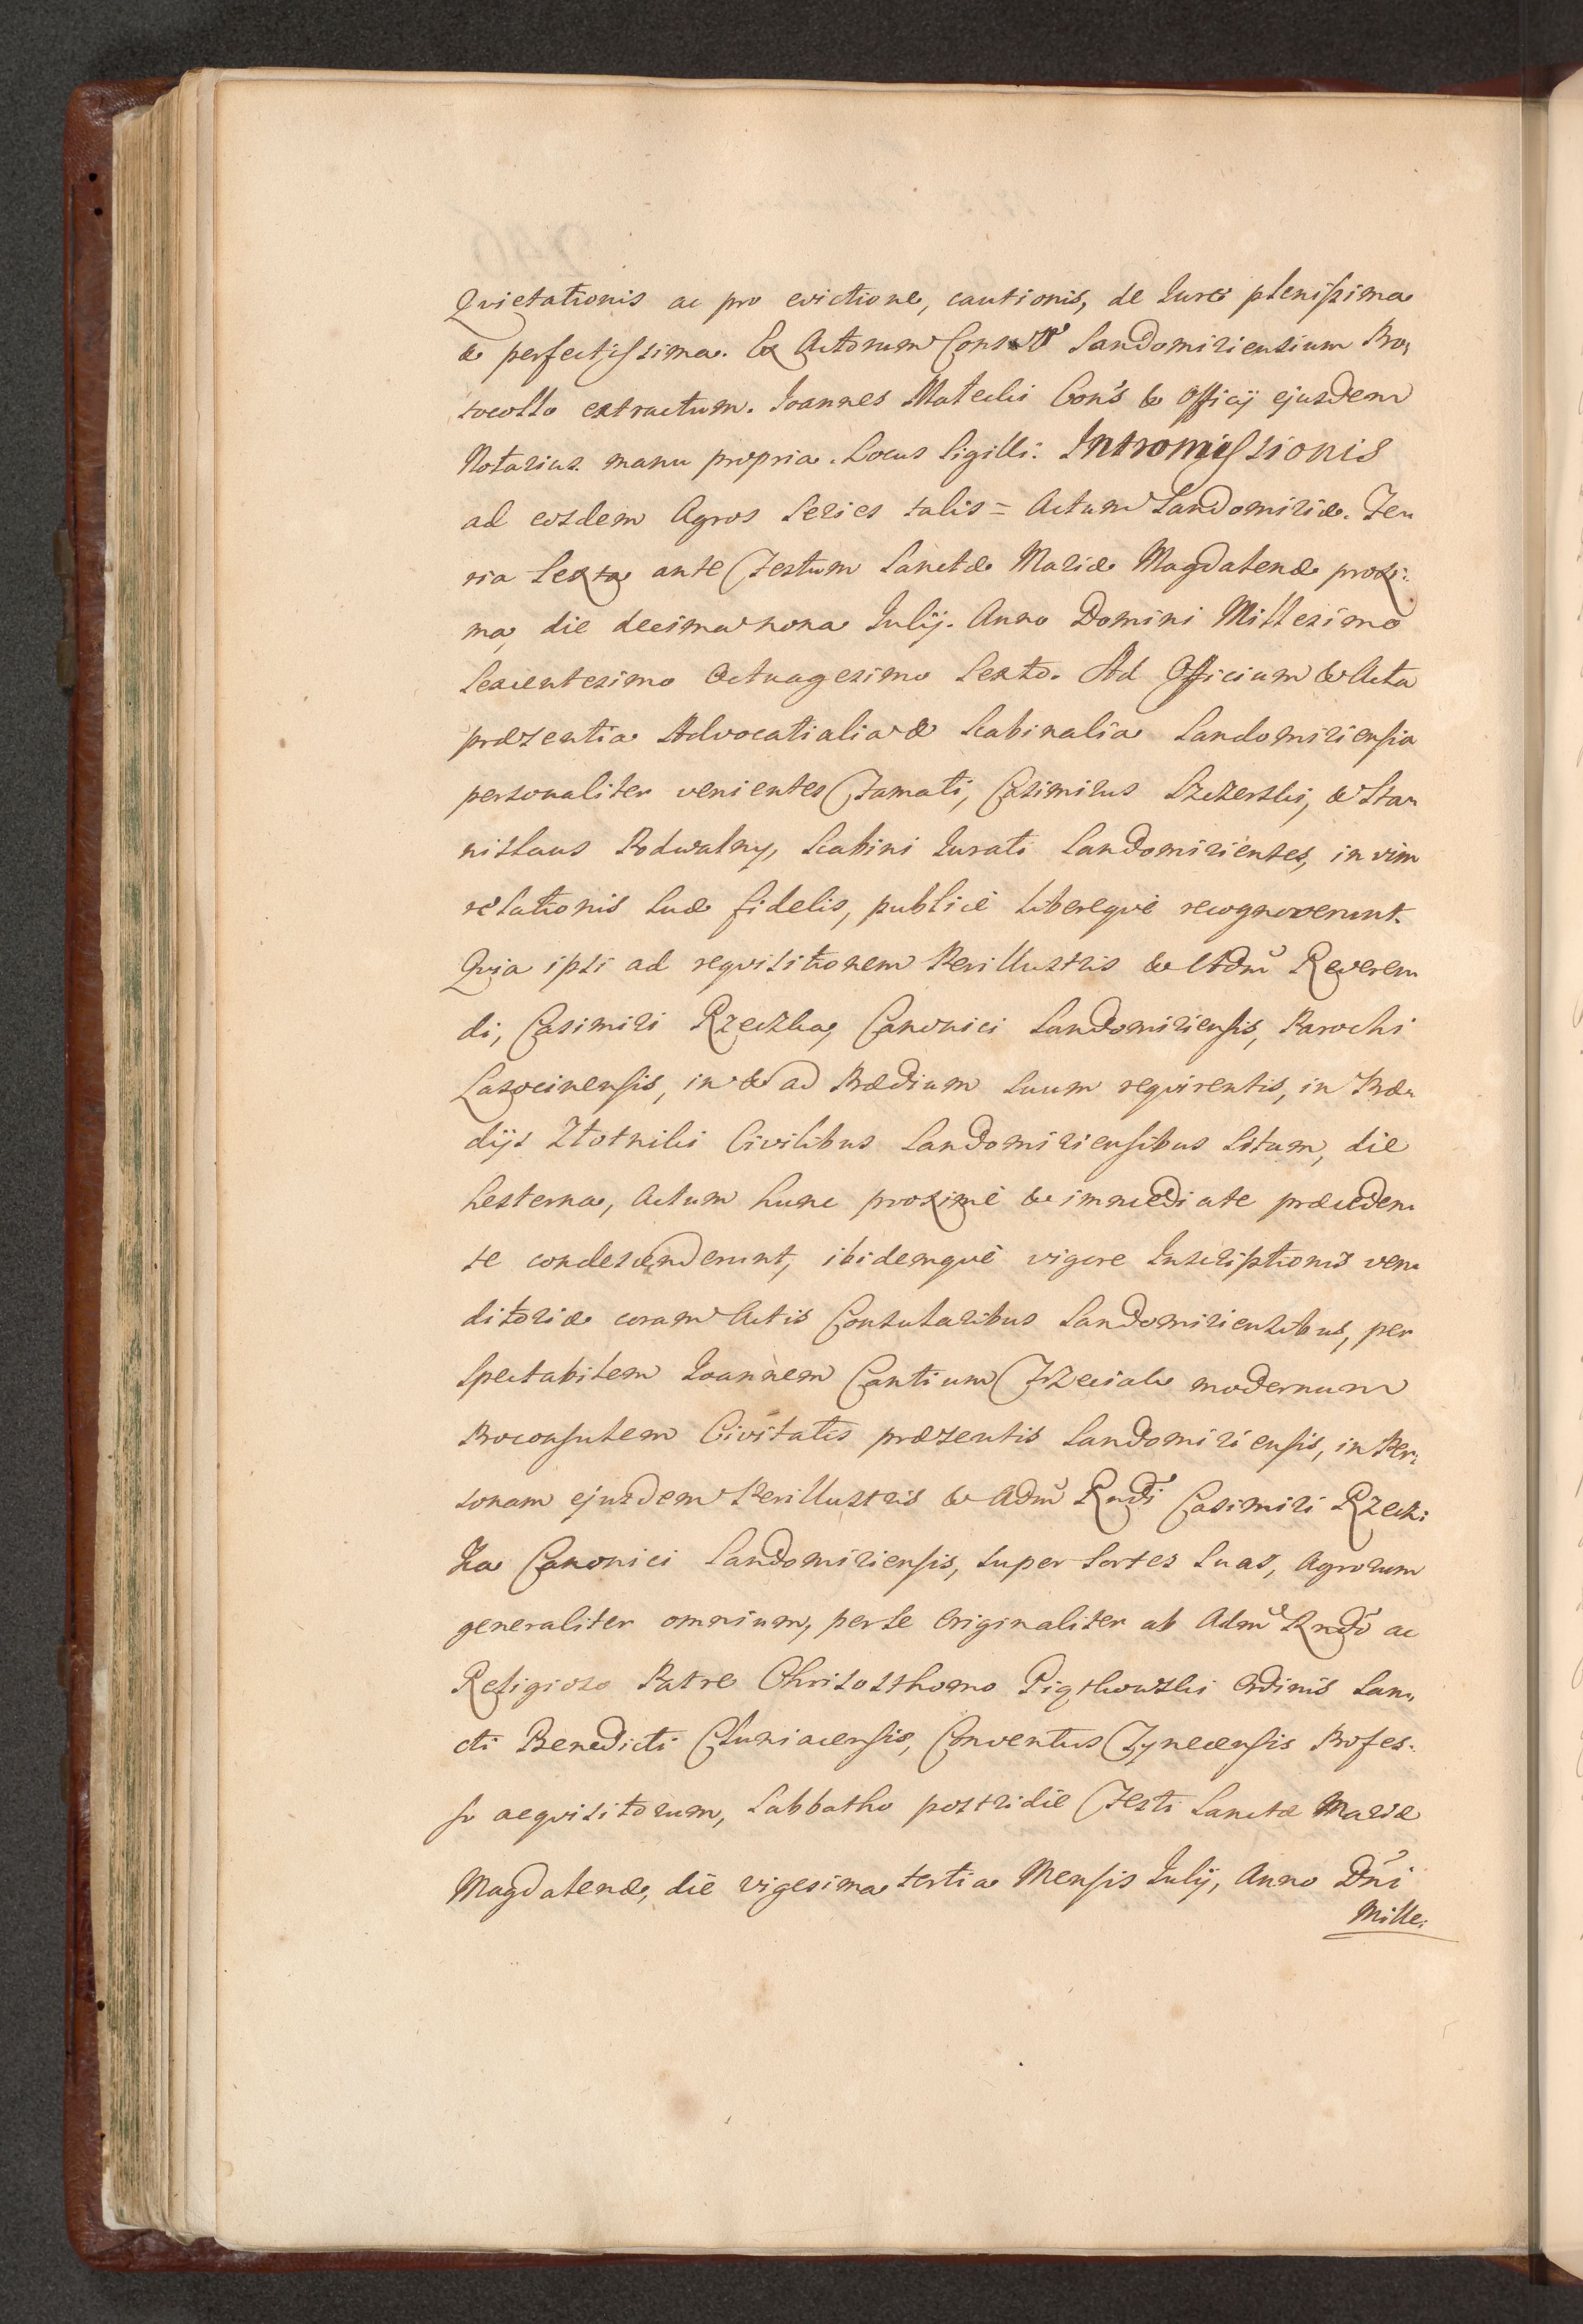 Qvietationis ac pro evictione, cautionis, de Jure plenissima
& perfectissima. Ex Actorum Sandomiriensium Pro,
tocollo extractum. Joannes Matecki Cons & Officij ejusdem
Notarius manu propria. Locus Sigilli: Intromissionis
ad eosdem Agros Series talis = Actum Sandomiriæ. Fe„
ria Sexta ante Festum Sanctæ Mariæ Magdalenæ proxi:
ma, die decima nona Julij. Anno Domini Millesimo
Sexcentesimo Octuagesimo Sexto. Ad Officium & Acta
præsentia Advocatialia & Scabinalia Sandomiriensia
personaliter venientes Famati, Casimirus Szczerski, & Sta„
nislaus Podwalny, Scabini Jurati Sandomirienses, in vim
relationis suæ fidelis, publicè libereqvè recognoverunt.
Qvia ipsi ad reqvisitionem Perillustris & Adm̃ Reveren„
di, Casimiri Rzeczka, Canonici Sandomiriensis, Parochi
Lasocinensis, in & ad Prædium suum reqvirentis, in Præ„
dijs Złotniki Civilibus Sandomiriensibus situm, die
hesterna, Actum hunc proximè & immediate præceden„
te condescenderunt, ibidemqvè vigore Inscriptionis ven„
ditoriæ coram Actis Consularibus Sandomiriensibus, per
Spectabilem Joannem Cantium Trzeciak modernum
Proconsulem Civitatis præsentis Sandomiriensis, in Per:
sonam ejusdem Perillustris & Adm̃ Rndi Casimiri Rzecz:
ka Canonici Sandomiriensis, super sortes suas, Agrorum
generaliter omnium, per se Originaliter ab Adm̃ Rndo ac
Religioso Patre Chrisosthomo Piątkowski Ordinis San„
cti Benedicti Cluniacensis, Conventus Tynecensis Profes:
so acqvisitorum, Sabbatho postridie Festi Sanctæ Mariæ
Magdalenæ, die vigesima tertia Mensis Julij, Anno Dñi
Mille: